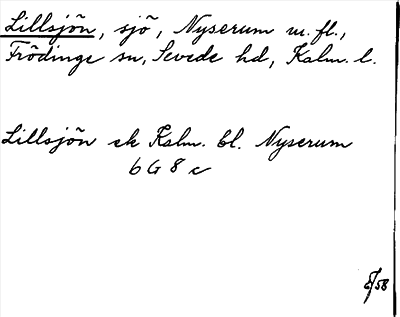 Lillsjön, sjö, Nyserum m. fl.,
Frödinge sn, Sevede hd, Kalm. l.
Lillsjön ek Kalm. bl. Nyserum
6 G 8 c
58